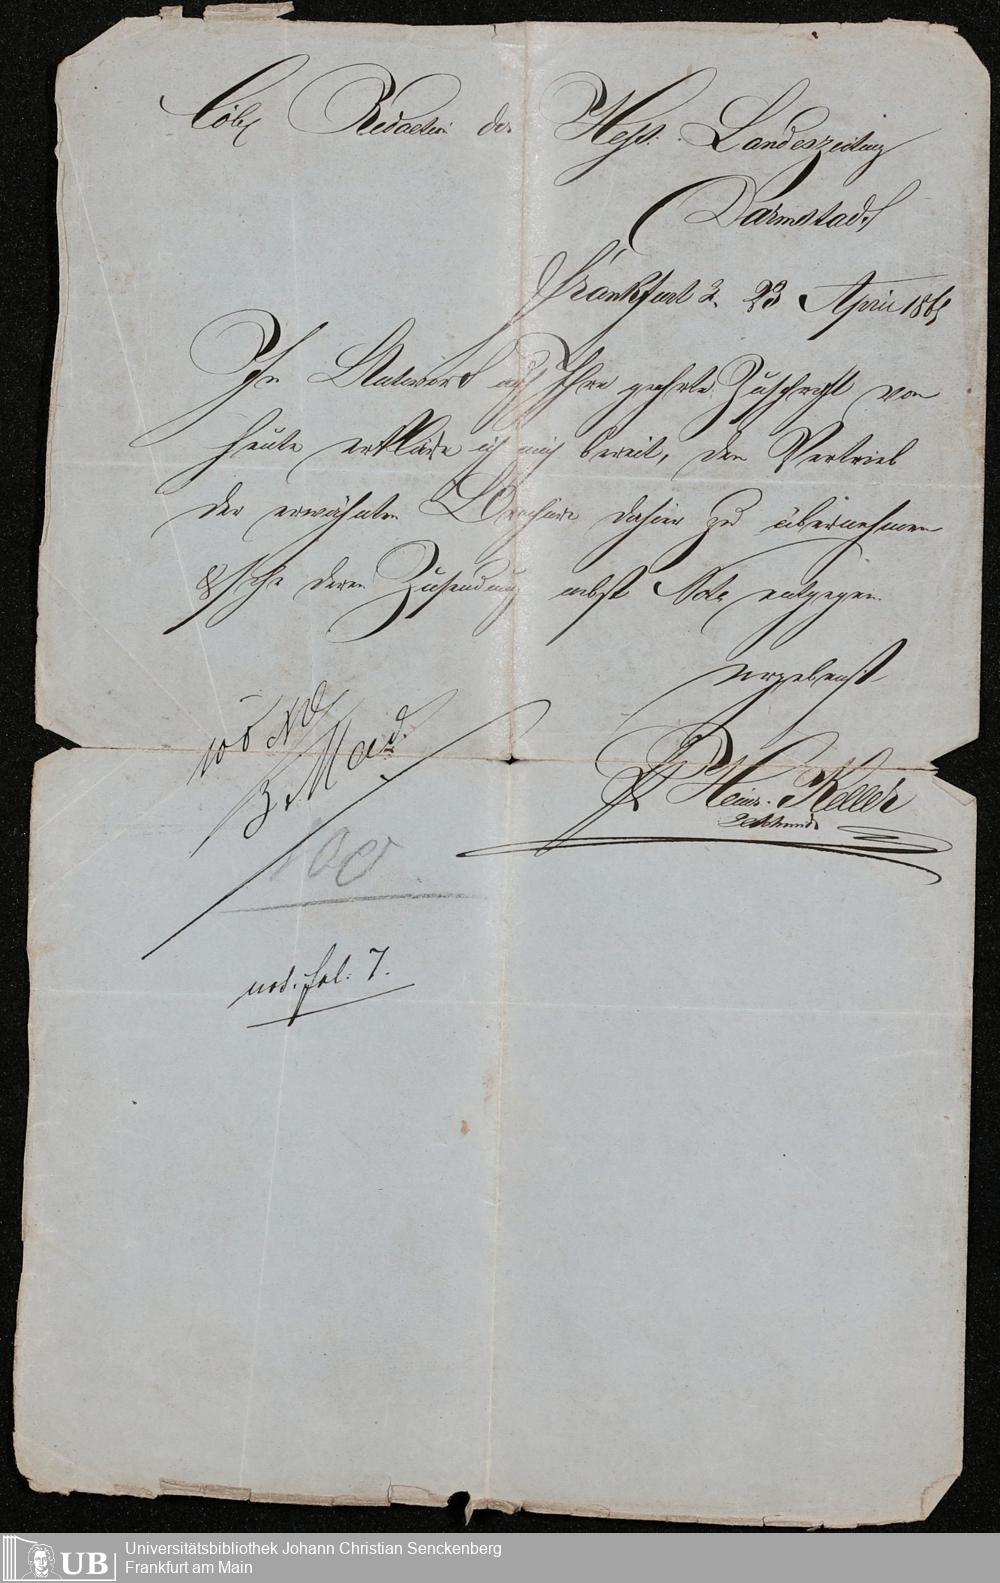 Löbl. Redaction der Hess. Landeszeitung
Darmstadt
Frankfurt 23 April 186
In Antwort auf Ihre geehrte Zuschrift von
heute erkläre ich mich bereit, den Vertrieb
der erwähnten Brochüre dahier zu übernehmen
& sehe deren Zusendung nebst Nota entgegen.
ergebenst
Heinr. Keller
100
not. fol. 7.
UB
Universitätsbibliothek Johann Christian Senckenberg
Frankfurt am Main